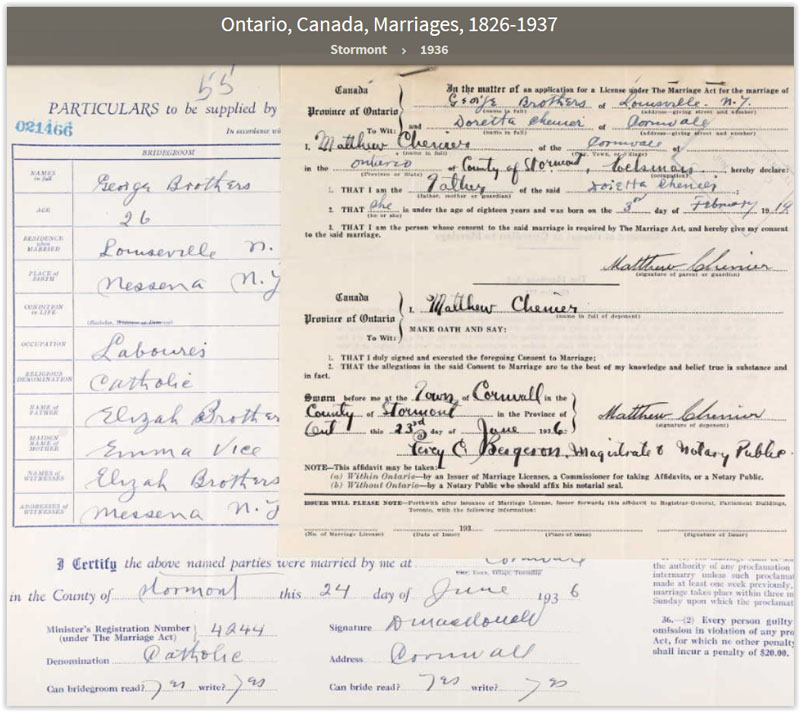 Ontario, Canada, Marriages, 1826-1937
Stormont › 1936
55
PARTICULARS to be supplied by
021466
In accordance wi
BRIDEGROOM
NAMES in full
George Brothers
AGE
26
RESIDENCE WHEN MARRIED
Louiseville N.
PLACE of BIRTH
Messena N. Y
CONDITION in LIFE
OCCUPATION
Labourer
RELIGIOUS DENOMINATION
Catholic
NAME of FATHER
Elizah Brother
MAIDEN NAME of MOTHER
Emma Vice
NAMES of WITNESSES
Elizah Brothers
ADDRESSES of WITNESSES
Messena N. Y
Canada
Province of Ontario
To Wit:
In the matter of an application for a License under The Marriage Act for the marriage of
George Brothers of Louisville. N.Y.
(name in full) (address—giving street and number)
and
Doretta Chenier of Cornwall
(name in full) (address—giving street and number)
I, Matthew Chenier of the Cornwall of
(name in full)
in the Ontario of County of Stormont, hereby declare:
(Province or State) (occupation)
1. THAT I am the Father of the said Doretta Chenier;
(father, mother or guardian)
2. THAT she is under the age of eighteen years and was born on the 3rd day of February 1919
(he or she)
3. THAT I am the person whose consent to the said marriage is required by The Marriage Act, and hereby give my consent
to the said marriage.
Matthew Chenier
(signature of parent or guardian)
Canada
Province of Ontario
To Wit:
I, Matthew Chenier
(name in full of deponent)
MAKE OATH AND SAY:
1. THAT I duly signed and executed the foregoing Consent to Marriage;
2. THAT the allegations in the said Consent to Marriage are to the best of my knowledge and belief true is substance and
in fact.
Sworn before me at the Town of Cornwall in the
County of Stormont in the Province of
Ont this 23rd day of June 1936.
Matthew Chenier
(signature of deponent)
Percy C Bergeron, Magistrate & Notary Public.
NOTE—This affidavit may be taken:
(a) Within Ontario—by an Issuer of Marriage Licenses, a Commissioner for taking Affidavits, or a Notary Public.
(b) Without Ontario—by a Notary Public who should affix his notarial seal.
ISSUER WILL PLEASE NOTE—Forthwith after issuance of Marriage License, Issuer forwards this affidavit to Registrar-General, Parliament Buildings,
Toronto, with the following information:
193
(No. of Marriage License) (Date of Issue) (Place of Issue) (Signature of Issuer)
I Certify the above named parties were married by me at Cornwall
City, Town, Village, Township
in the County of Stormont this 24 day of June 1936
Minister's Registration Number (under The Marriage Act) 4244
Signature D Macdonald
Denomination Catholic
Address Cornwall
Can bridegroom read? yes write? yes
Can bride read? yes write? yes
the authority of any proclamation
internatry unless such proclamat
made at least one week previously,
marriage takes place within three m
Sunday upon which the proclamat
36.—(2) Every person guilty
omission in violation of any pro
Act, for which no other penalty
shall incur a penalty of $20.00.